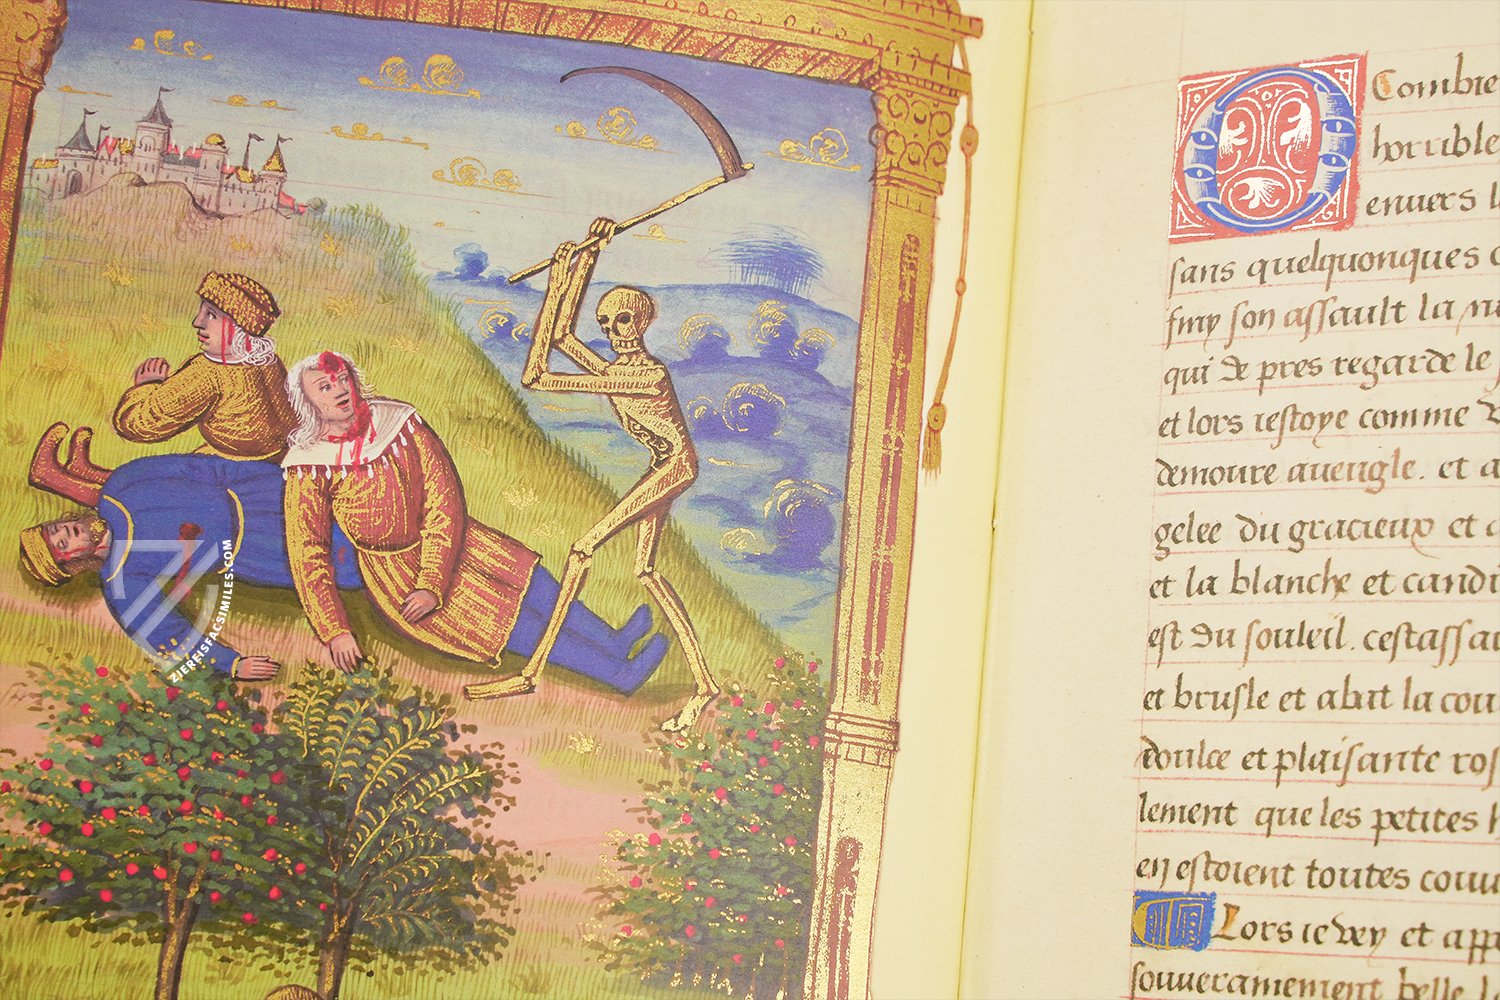 O Combie
horrible
enuers l
sans quelquonques
finy son assault la
qui de pres regarde le
et lors iestoye comme
demoure aueugle. et a
gelee du gracieux et a
et la blanche et candi
est du souleil. cestassa
et brusle et abat la cou
doulce et plaisante ros
lement que les petites
en estoient toutes couu
Lors ie vey et app
souueramement belle
ZIEREISFACSIMILES.COM